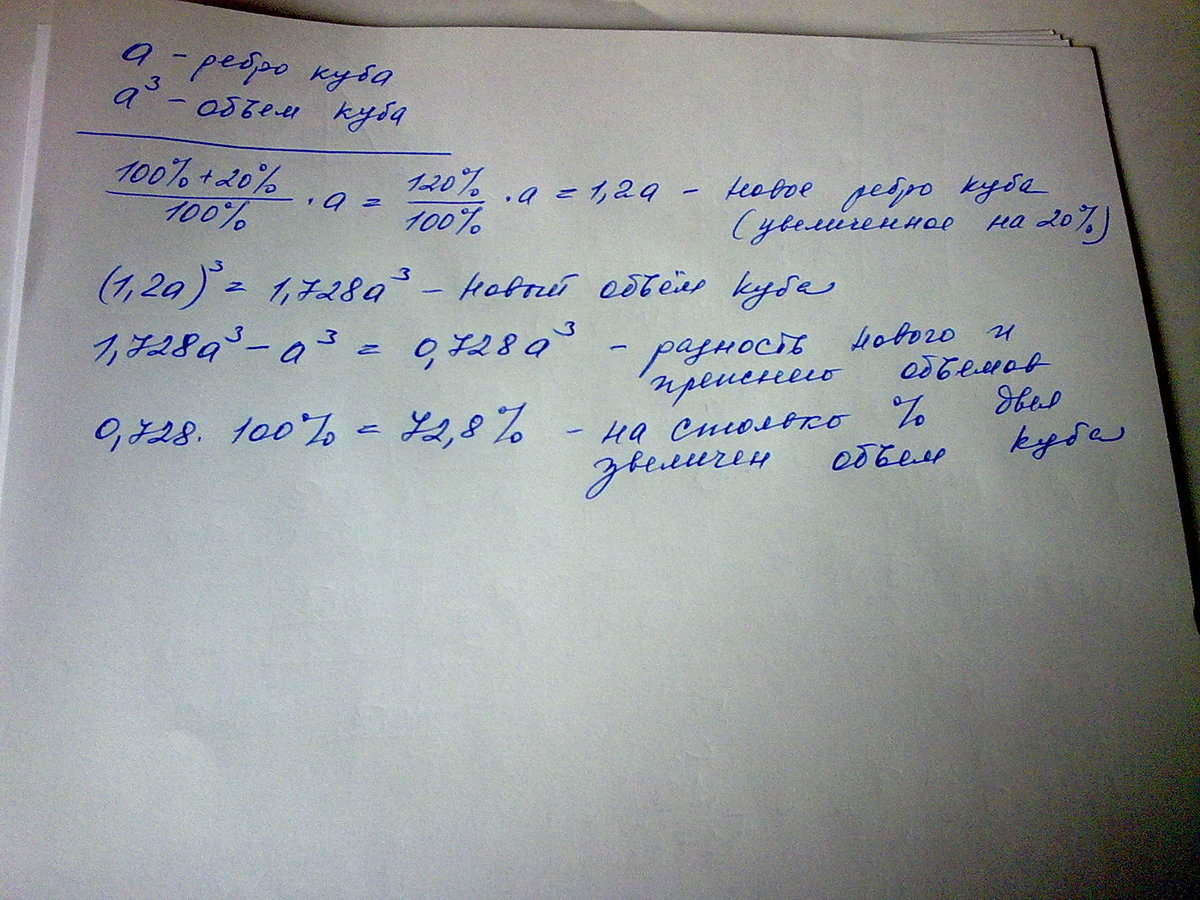 a - ребро куба
a³ - объем куба
100%+20% / 100% · a = 120% / 100% · a = 1,2a - новое ребро куба
(увеличенное на 20%)
(1,2a)³ = 1,728a³ - новый объём куба
1,728a³ - a³ = 0,728a³ - разность нового и
прежнего объемов
0,728 · 100% = 72,8% - на столько %
увеличен объем куба